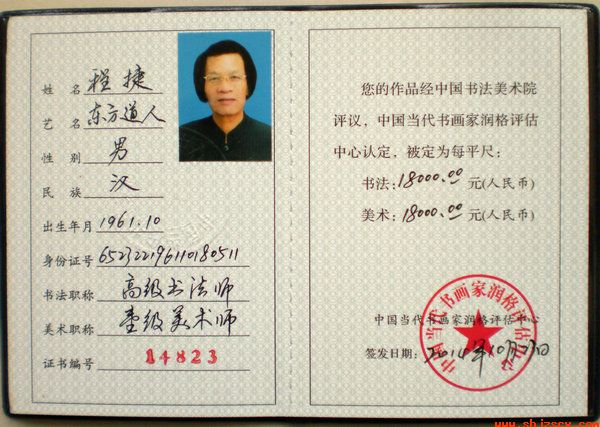 姓 名 程 捷
艺 名 东方道人
性 别 男
民 族 汉
出生年月 1961.10
身份证号 652322196110180511
书法职称 高级书法师
美术职称 壹级美术师
证书编号 14823
您的作品经中国书法美术院
评议，中国当代书画家润格评估
中心认定，被定为每平尺：
书法：18000.00 元(人民币)
美术：18000.00 元(人民币)
中国当代书画家润格评估中心
中国当代书画家润格评估中心
签发日期：2014年10月27日
www.shjzscx.com